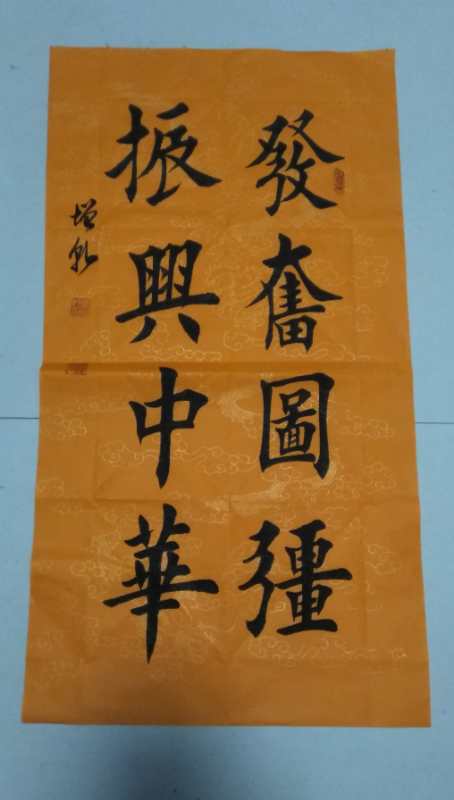 發奮圖彊
振興中華
增